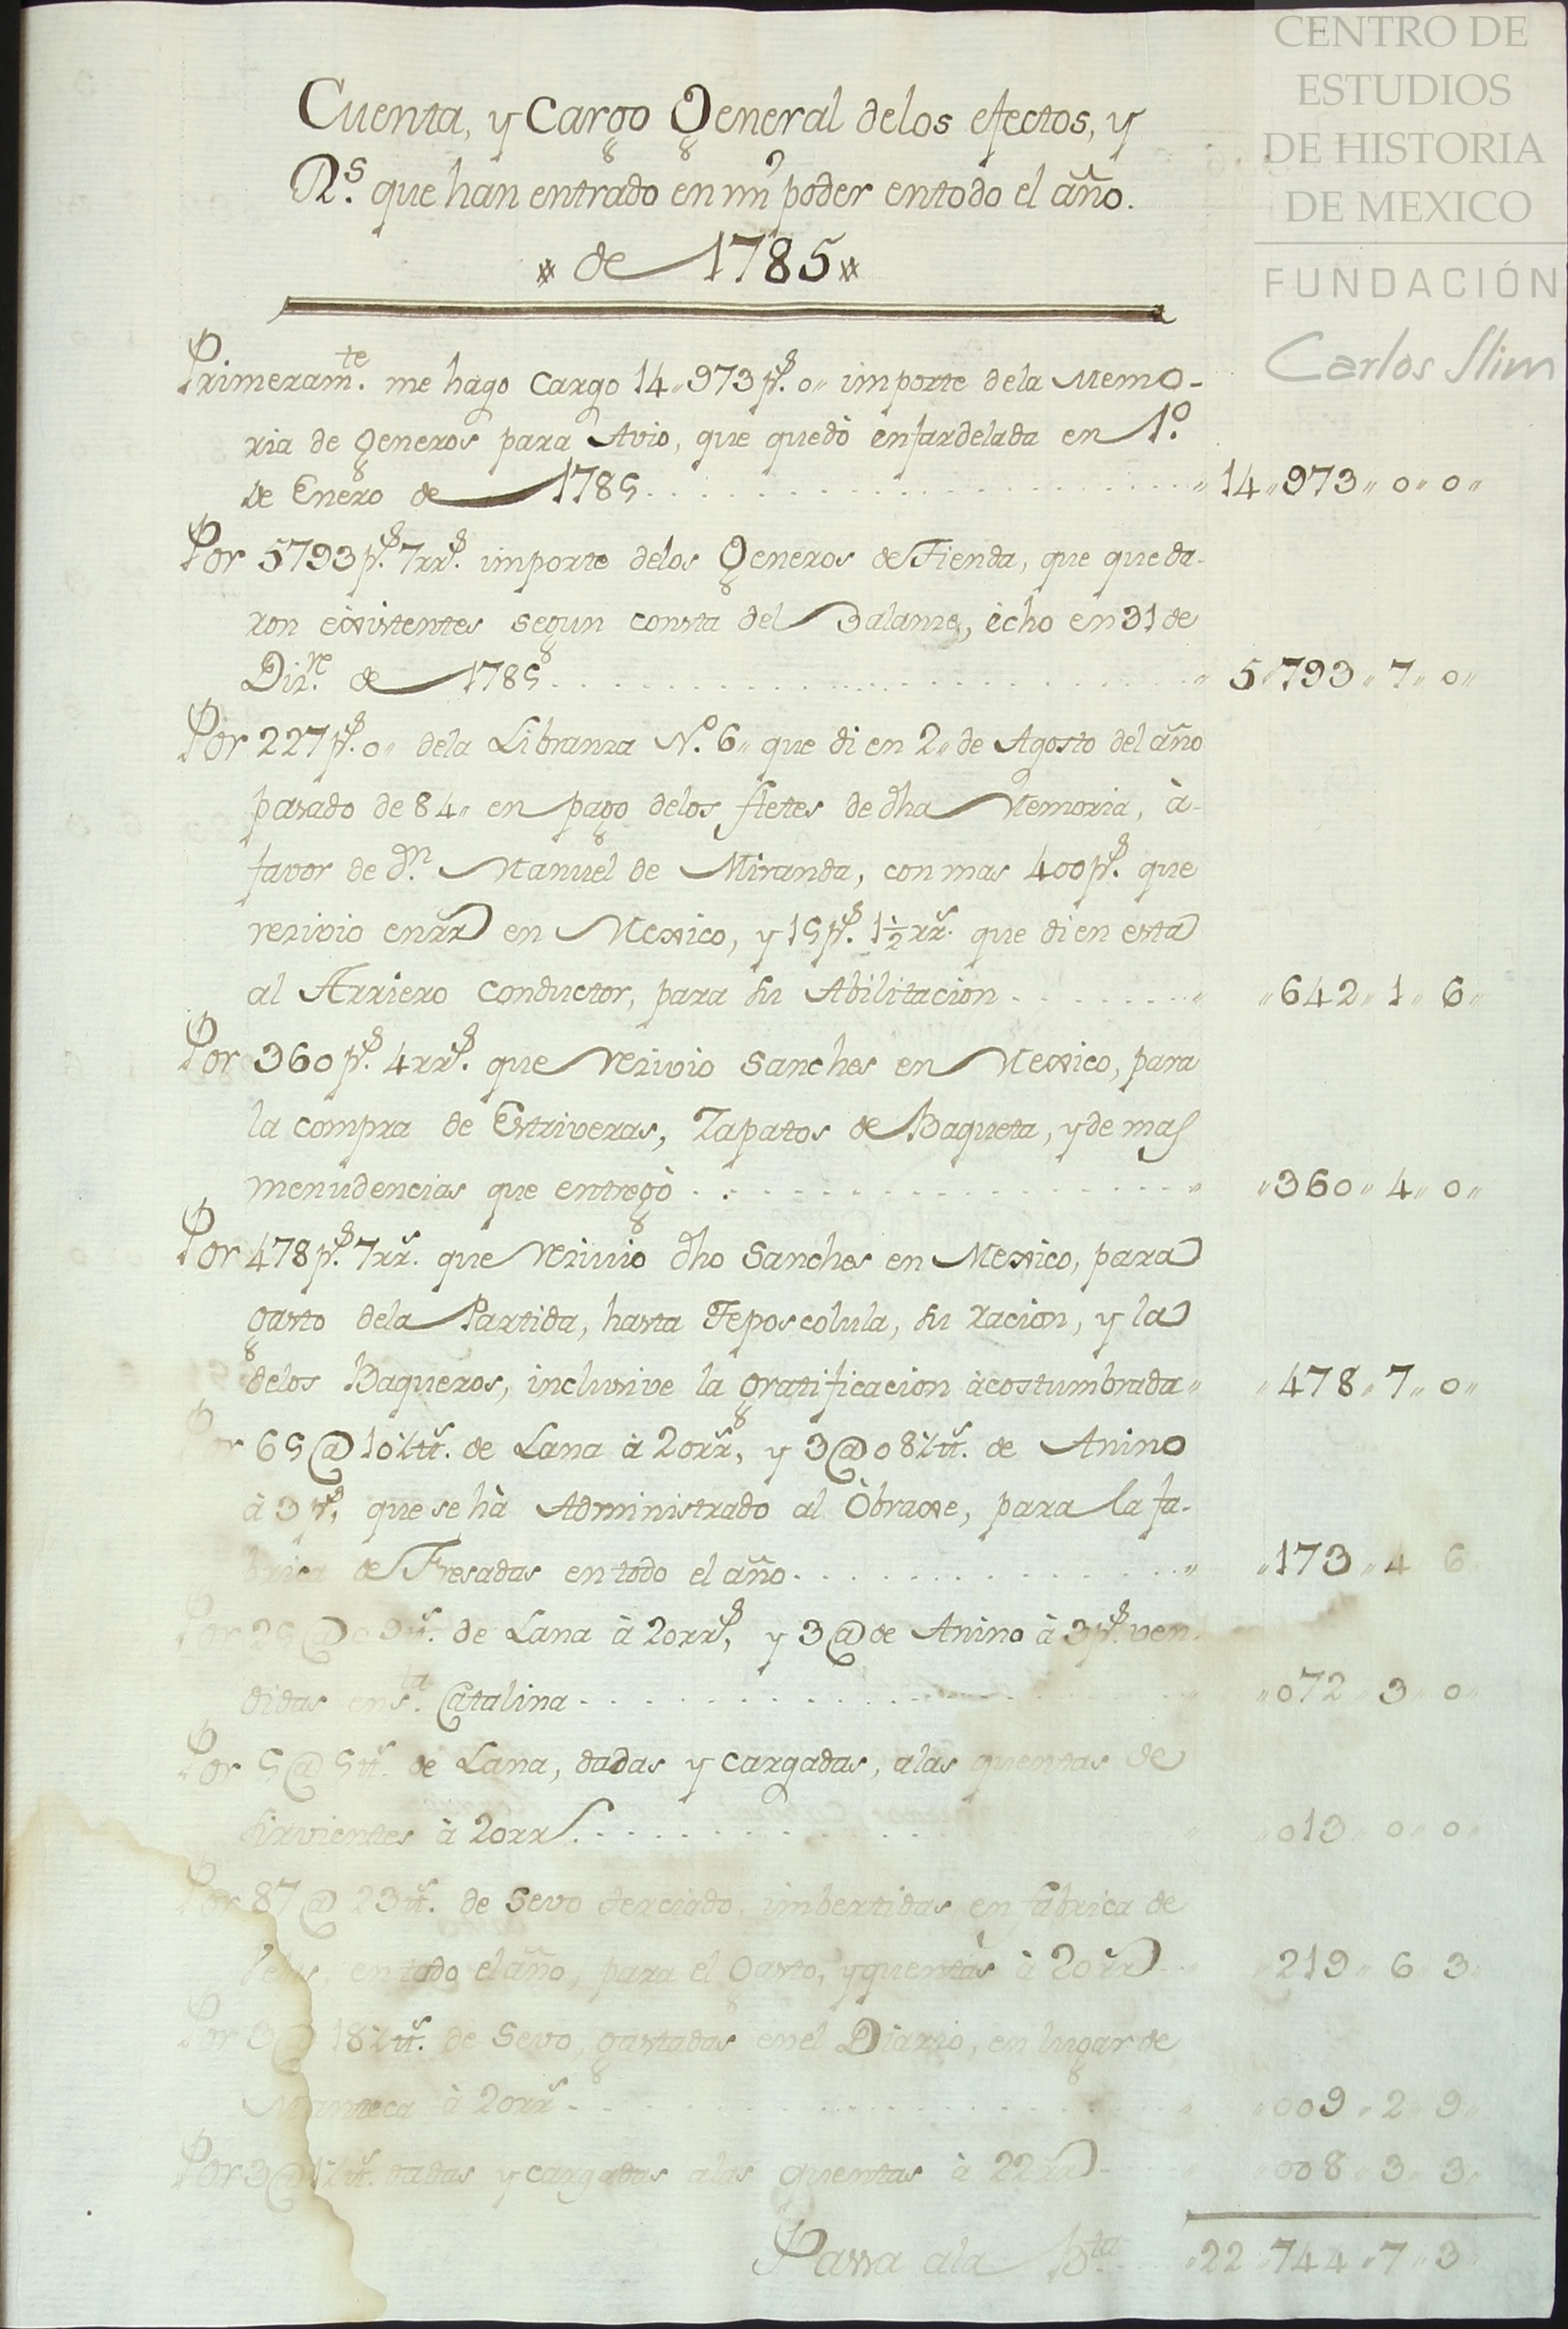 CENTRO DE
ESTUDIOS
DE HISTORIA
DE MEXICO
FUNDACIÓN
Carlos Slim
Cuenta, y Cargo General delos efectos, y
Rs. que han entrado en mi poder entodo el año.
de 1785
Primeramte. me hago Cargo 14,,973ps. 0,, importe dela Memo-
ria de generos para Avio, que quedò enfardelada en 1o.
de Enero de 1785. ,, 14,,973,,0,,0,,
Por 5793ps. 7rrs. importe delos Generos de Tienda, que queda-
ron èxistentes segun consta del Balanze, ècho en 31 de
Dizre. de 1785. ,, 5,,793,,7,,0,,
Por 227ps. 0,, dela Libranza No. 6,, que di en 2,, de Agosto del año
pasado de 84,, en pago delos fletes de dha Memoria, à
favor de dn. Manuel de Miranda, con mas 400ps. que
rezivio enrr en Mexico, y 15ps. 1½rrs. que di en esta
al Arriero Conductor, para su Abilitacion ,, ,,642,,1,,6,,
Por 360ps. 4rrs. que Rezivio Sanches en Mexico, para
la compra de Estriveras, Zapatos de Baqueta, y de mas
menudencias que entregò ,, ,,360,,4,,0,,
Por 478ps. 7rrs. que Rezivio dho Sanches en Mexico, para
gasto dela Partida, hasta Teposcolula, su racion, y la
delos Baqueros, inclusive la gratificacion àcostumbrada,, ,,478,,7,,0,,
Por 65@10½tts. de Lana à 20rrs, y 3@08½tts. de Anino
à 3ps, que se hà Administrado al Òbraxe, para la fa-
brica de Fresadas en todo el año. ,, ,,173,,4 6
Por 25@09tts. de Lana à 20rrs, y 3@de Anino à 3ps. ven-
didas en sta. Catalina ,, ,,072,,3,,0,,
Por 5@5tts. de Lana, dadas y cargadas, alas quentas de
sirvientes à 20rrs. ,, ,,013,,0,,0,,
Por 87@23tts. de Sevo derciado, imbertidas en fabrica de
Velas, en todo el año, para el Gasto, y quentas à 20rr ,, 219,,6,,3,,
Por 3@18½tts. de Sevo, gastadas enel Diario, en lugar de
Manteca à 20rrs. ,, ,,009,,2,,9,,
Por 3@1½tts. dadas y cargadas alas quentas à 22rr ,, ,,008,,3,,3,,
Passa ala bta. ,,22,,744,,7,,3,,